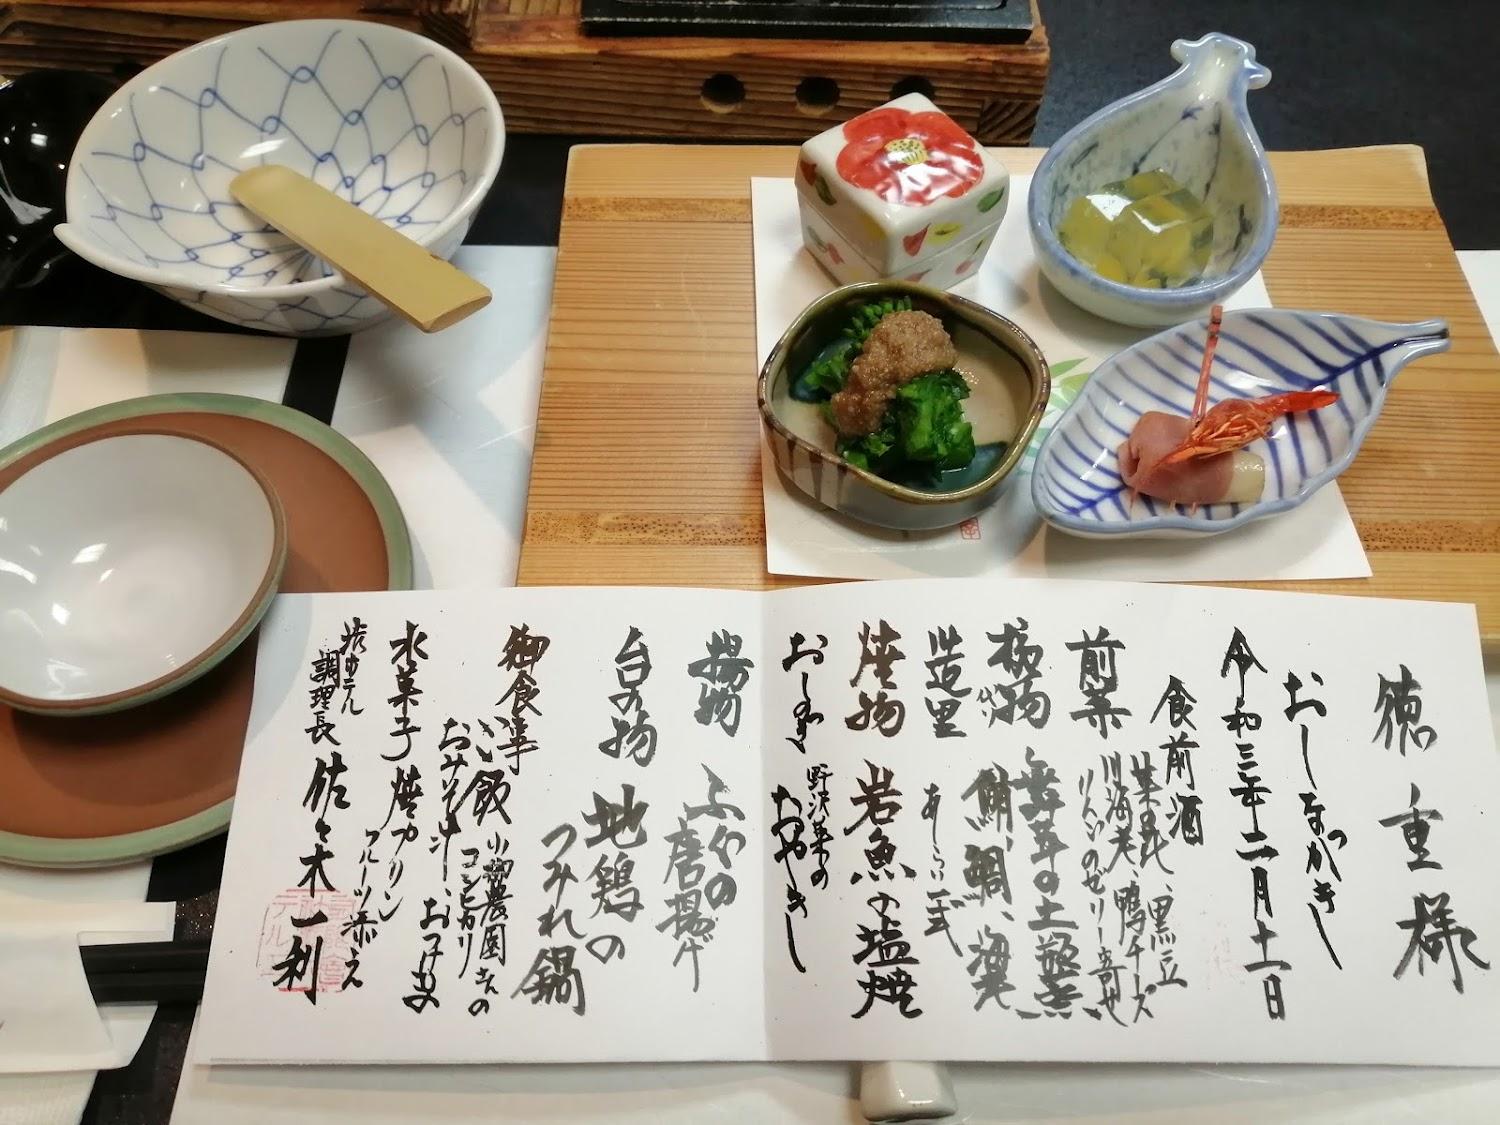 徳重様
おしながき
令和三年二月十一日
食前酒
前菜 菜花、黒豆
川海老、鴨チーズ
りんごのゼリー寄せ
椀物 舞茸の土瓶蒸し
造里 鯛、
あしらい一式
焼物 岩魚の塩焼
おしのぎ 野沢菜の
おやきし
揚物 ふぐの
唐揚げ
台の物 地鶏の
つみれ鍋
御食事 ご飯 小柳農園さんの
コシヒカリ
おみそ汁、おつけもの
水菓子 焼カリン
フルーツ添え
ホテル
調理長 佐々木一利